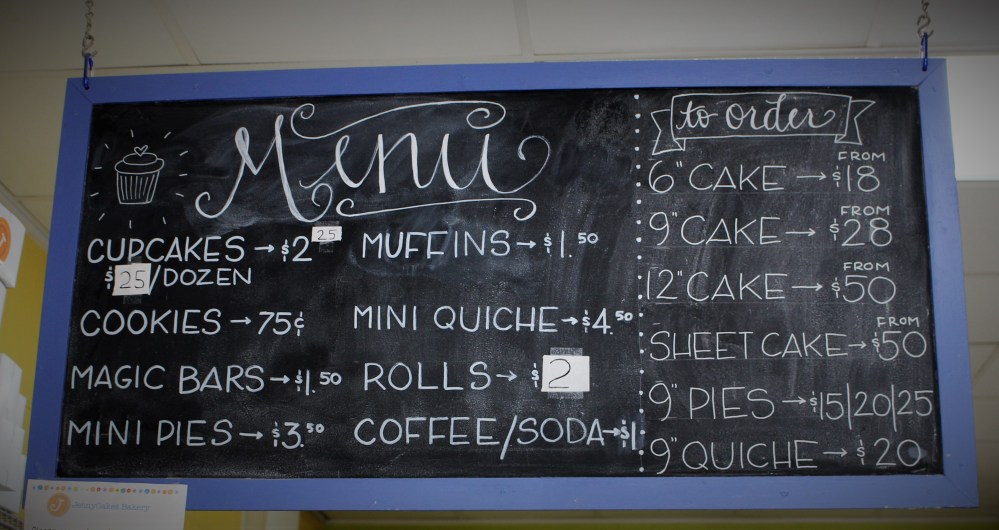 Menu
CUPCAKES → $2 25
$25/DOZEN
COOKIES → 75¢
MAGIC BARS → $1.50
MINI PIES → $3.50
MUFFINS → $1.50
MINI QUICHE → $4.50
ROLLS → $2
COFFEE/SODA → $1
to order
6" CAKE → FROM $18
9" CAKE → FROM $28
12" CAKE → FROM $50
SHEET CAKE → FROM $50
9" PIES → $15|20|25
9" QUICHE → $20
J JennyCakes Bakery